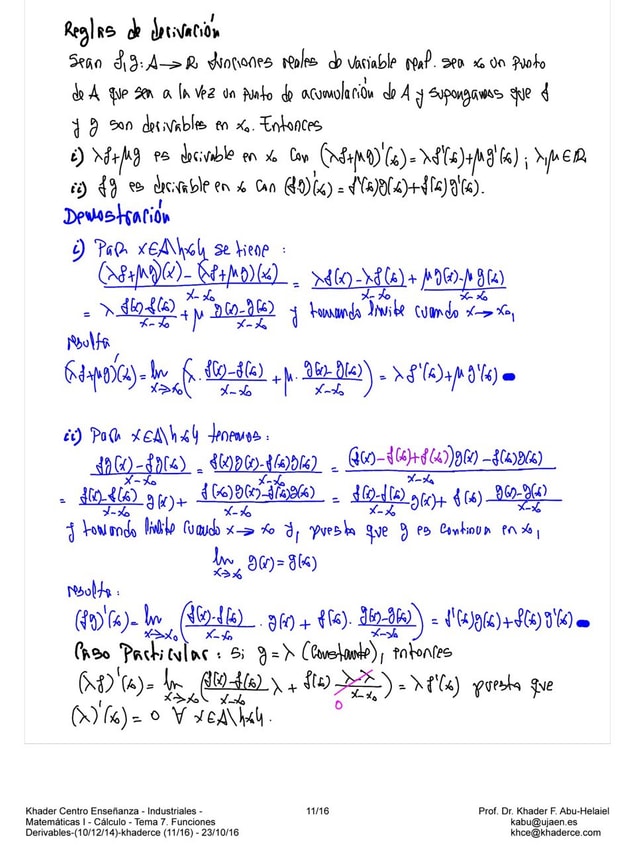 Reglas de derivación
Sean f,g: A→ℝ funciones reales de variable real. Sea x₀ un punto
de A que sea a la vez un punto de acumulación de A y supongamos que f
y g son derivables en x₀. Entonces
i) λf+μg es derivable en x₀ con (λf+μg)'(x₀)=λf'(x₀)+μg'(x₀) ; λ,μ∈ℝ
ii) fg es derivable en x₀ con (fg)'(x₀)=f'(x₀)g(x₀)+f(x₀)g'(x₀).
Demostración
i) Para x∈A\{x₀} se tiene :
((λf+μg)(x)-(λf+μg)(x₀))/(x-x₀) = (λf(x)-λf(x₀))/(x-x₀) + (μg(x)-μg(x₀))/(x-x₀)
= λ (f(x)-f(x₀))/(x-x₀) + μ (g(x)-g(x₀))/(x-x₀) y tomando límite cuando x→x₀,
resulta
(λf+μg)'(x₀)= lim x→x₀ (λ·(f(x)-f(x₀))/(x-x₀) + μ·(g(x)-g(x₀))/(x-x₀)) = λf'(x₀)+μg'(x₀)
ii) Para x∈A\{x₀} tenemos :
(fg(x)-fg(x₀))/(x-x₀) = (f(x)g(x)-f(x₀)g(x₀))/(x-x₀) = ((f(x)-f(x₀)+f(x₀))g(x)-f(x₀)g(x₀))/(x-x₀)
= (f(x)-f(x₀))/(x-x₀) g(x) + (f(x₀)g(x)-f(x₀)g(x₀))/(x-x₀) = (f(x)-f(x₀))/(x-x₀) g(x) + f(x₀) (g(x)-g(x₀))/(x-x₀)
y tomando límite cuando x→x₀ y, puesto que g es continua en x₀,
lim x→x₀ g(x)=g(x₀)
resulta :
(fg)'(x₀)= lim x→x₀ ((f(x)-f(x₀))/(x-x₀) · g(x) + f(x₀)·(g(x)-g(x₀))/(x-x₀)) = f'(x₀)g(x₀)+f(x₀)g'(x₀)
Caso Particular : Si g=λ (constante), entonces
(λf)'(x₀)= lim x→x₀ ((f(x)-f(x₀))/(x-x₀) λ + f(x₀) (λ-λ)/(x-x₀)) = λf'(x₀) puesto que
0
(λ)'(x₀)=0 ∀ x∈A\{x₀}.
Khader Centro Enseñanza - Industriales -
Matemáticas I - Cálculo - Tema 7. Funciones
Derivables-(10/12/14)-khaderce (11/16) - 23/10/16
11/16
Prof. Dr. Khader F. Abu-Helaiel
kabu@ujaen.es
khce@khaderce.com